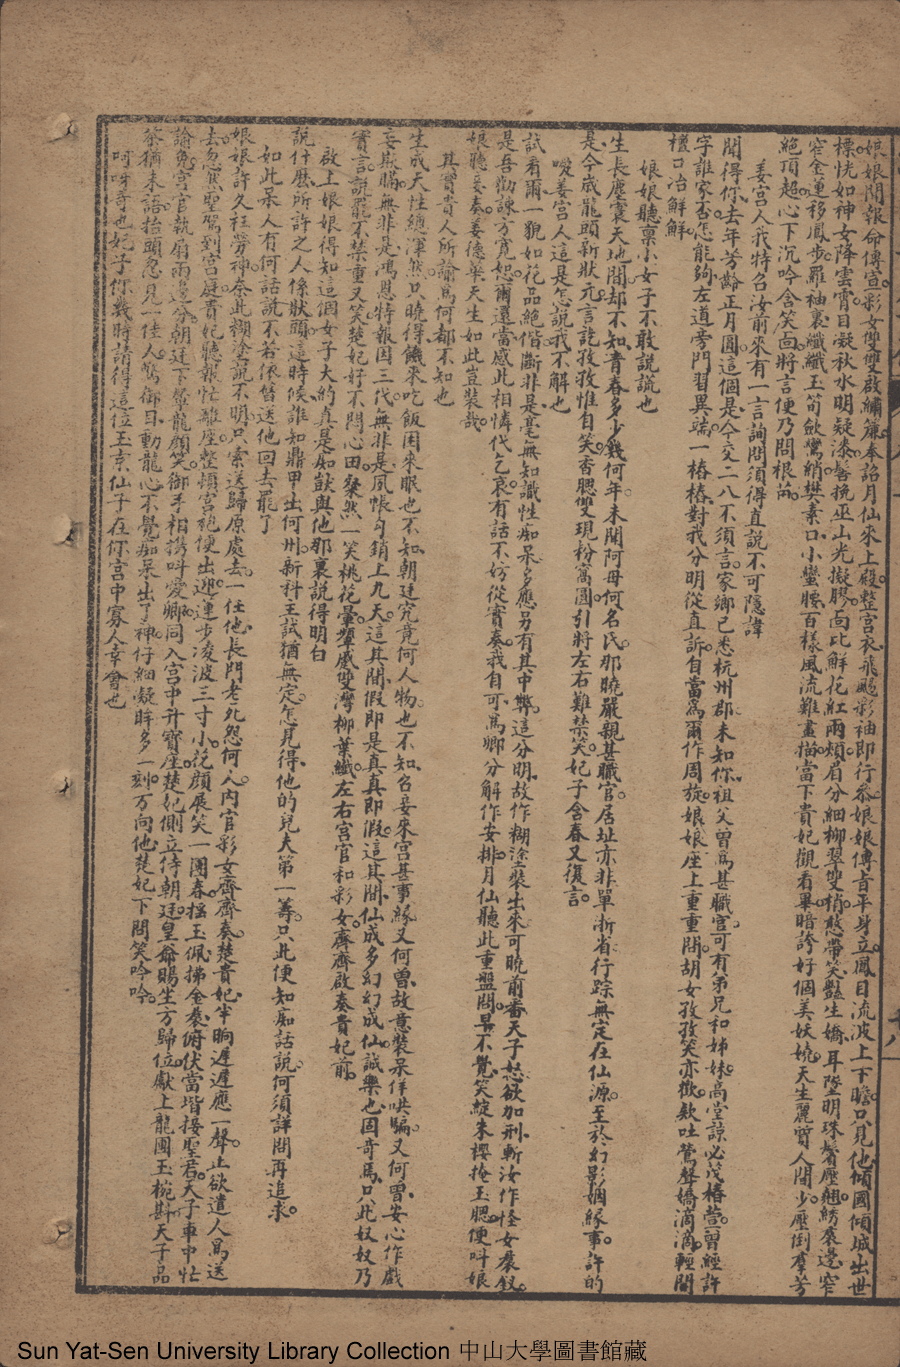 娘娘聞報命傳宣彩女雙雙啟繡簾奉詔月仙來上殿整宮衣飛颺彩袖即行叅娘娘傳旨平身立鳳目流波上下瞻只見他傾國傾城出世
標恍如神女降雲霄目凝秋水明疑漆鬓挽巫山光擬膠向比鮮花紅兩頰眉分細柳翠雙梢慈帶笑豔生嬌耳墜明珠鬓壓翹綉裙邊窄
窄金蓮移鳳步羅袖裏纖纖玉筍歛鸞綃樊素口小蠻腰百樣風流難畫描當下貴妃觀看畢暗誇好個美妖嬈天生麗質人間少壓倒羣芳
絕頂超心下沉吟含笑向將言便乃問根苗
姜宮人我特召汝前來有一言詢問須得直説不可隱諱
聞得你去年芳齡正月圓這個是今交二八不須言家鄉已悉杭州郡未知你祖父曾爲甚職官可有弟兄和姊妹高堂諒必茂椿萱曾經許
字誰家否怎能夠左道旁門習異端一樁樁對我分明從直訴自當爲爾作周旋娘娘座上重重問胡女孜孜笑亦歡欸吐鶯聲嬌滴滴輕開
檀口冶鮮鮮
娘娘聽禀小女子不敢説謊也
生長塵寰天地間却不知青春多少幾何年未聞阿母何名氏那曉嚴親甚職官居址亦非單浙省行踪無定在仙源至於幻影姻緣事許的
是今歲龍頭新狀元言訖孜孜惟自笑香腮雙現粉窩圓引將左右難禁笑妃子含春又復言
噯姜宮人這是怎説我不解也
試看爾一貌如花品絕偕斷非是毫無知識性痴呆多應另有其中弊這分明故作糊塗裝出來可曉前番天子愁欲加刑斬汝作怪女裙釵
是吾勸諫方寬恕爾還當感此相憐代乞哀有話不妨從實奏我自可爲卿分解作安排月仙聽此重盤問不覺笑綻朱櫻掩玉腮便呌娘
娘聽妾奏姜德華天生如此豈裝哉
其實貴人所諭爲何都不知也
生成天性總渾然只曉得饑來吃飯困來眠也不知朝廷究竟何人物也不知名妾來宮甚事緣又何曾故意裝呆佯哄騙又何曾安心作戲
妄欺瞞無非是鴻恩特報因三代無非是風帳勾銷上九天這其間假即是真真即假這其間仙成多幻幻成仙誠樂也固奇焉只此奴奴乃
實言説罷不禁重又笑楚妃好不悶心田粲然一笑桃花暈顰蹙雙灣柳葉纖左右宮官和彩女齊齊啟奏貴妃前
啟上娘娘得知這個女子大約真是痴獃與他那裏説得明白
説什麼所許之人係狀頭這時候誰知鼎甲出何州新科王試猶無定怎見得他的兒夫第一籌只此便知痴話説何須詳問再追求
如此呆人有何話説不若依舊送他回去罷了
娘娘許久枉勞神奈此糊塗説不明只索送歸原處去一任他長門老死怨何人內官彩女齊齊奏楚貴妃半晌遲遲應一聲止欲遣人爲送
去忽然聖駕到宮庭貴妃聽報忙離座整頓宮袍便出迎蓮步凌波三寸小花顏展笑一團春搖玉佩拂金裙俯伏當堦接聖君天子車中忙
諭免宮官執扇兩邊分朝廷下輦龍顏笑御手相携呌愛卿同入宮中升寶座楚妃側立侍朝廷皇爺賜坐方歸位獻上龍團玉椀斟天子品
茶猶未語抬頭忽見一佳人驚御目動龍心不覺痴呆出了神仔細凝眸多一刻方向他楚妃下問笑吟吟
呵呀奇也妃子你幾時請得這位玉京仙子在你宮中寡人幸會也
Sun Yat-Sen University Library Collection 中山大學圖書館藏